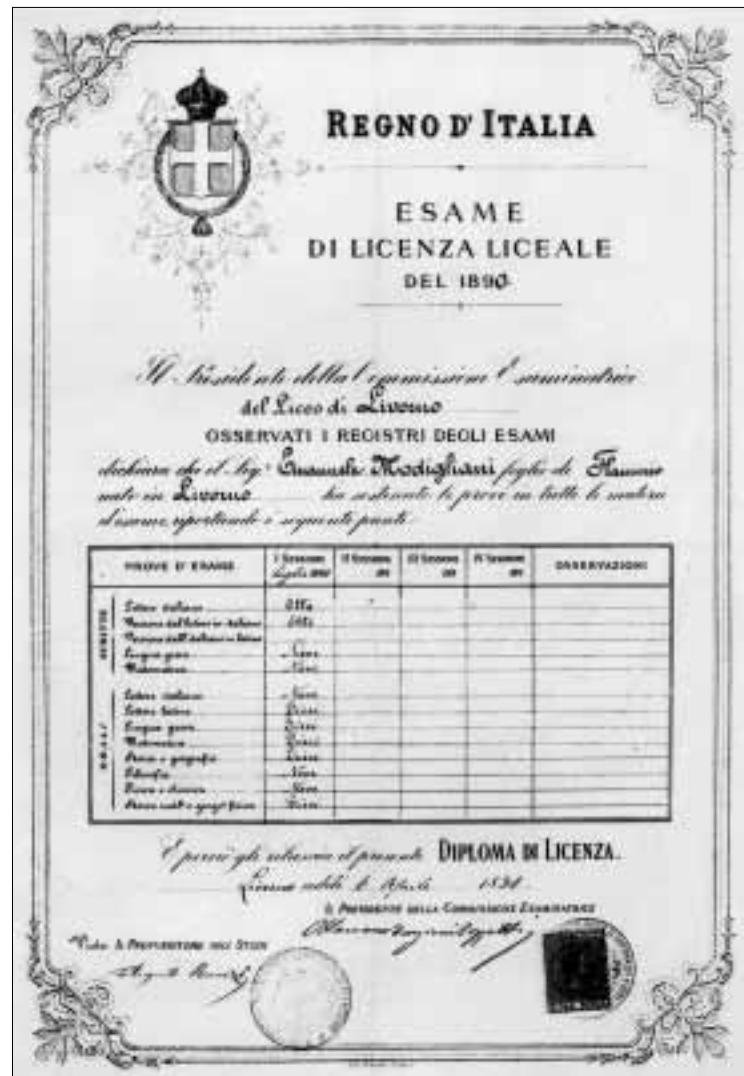 REGNO D'ITALIA
ESAME
DI LICENZA LICEALE
DEL 1890
Il Presidente della Commissione Esaminatrice
del Liceo di Livorno
OSSERVATI I REGISTRI DEGLI ESAMI
dichiara che il Sig. Emanuele Modigliani figlio di Flaminio
nato in Livorno ha sostenute le prove in tutte le materie
d'esame, riportando i seguenti punti
PROVE D'ESAME I SESSIONE II SESSIONE III SESSIONE IV SESSIONE OSSERVAZIONI
Luglio 1890
SCRITTE
Lettere italiane Otto
Versione dal latino in italiano Otto
Versione dall'italiano in latino
Lingua greca Nove
Matematica Nove
ORALI
Lettere italiane Nove
Lettere latine
Lingua greca
Matematica
Storia e geografia
Filosofia Nove
Fisica e chimica Nove
Storia nat. e geogr. fisica
E perciò gli rilascia il presente DIPLOMA DI LICENZA.
Livorno addì
IL PRESIDENTE DELLA COMMISSIONE ESAMINATRICE
Visto: IL PROVVEDITORE AGLI STUDI